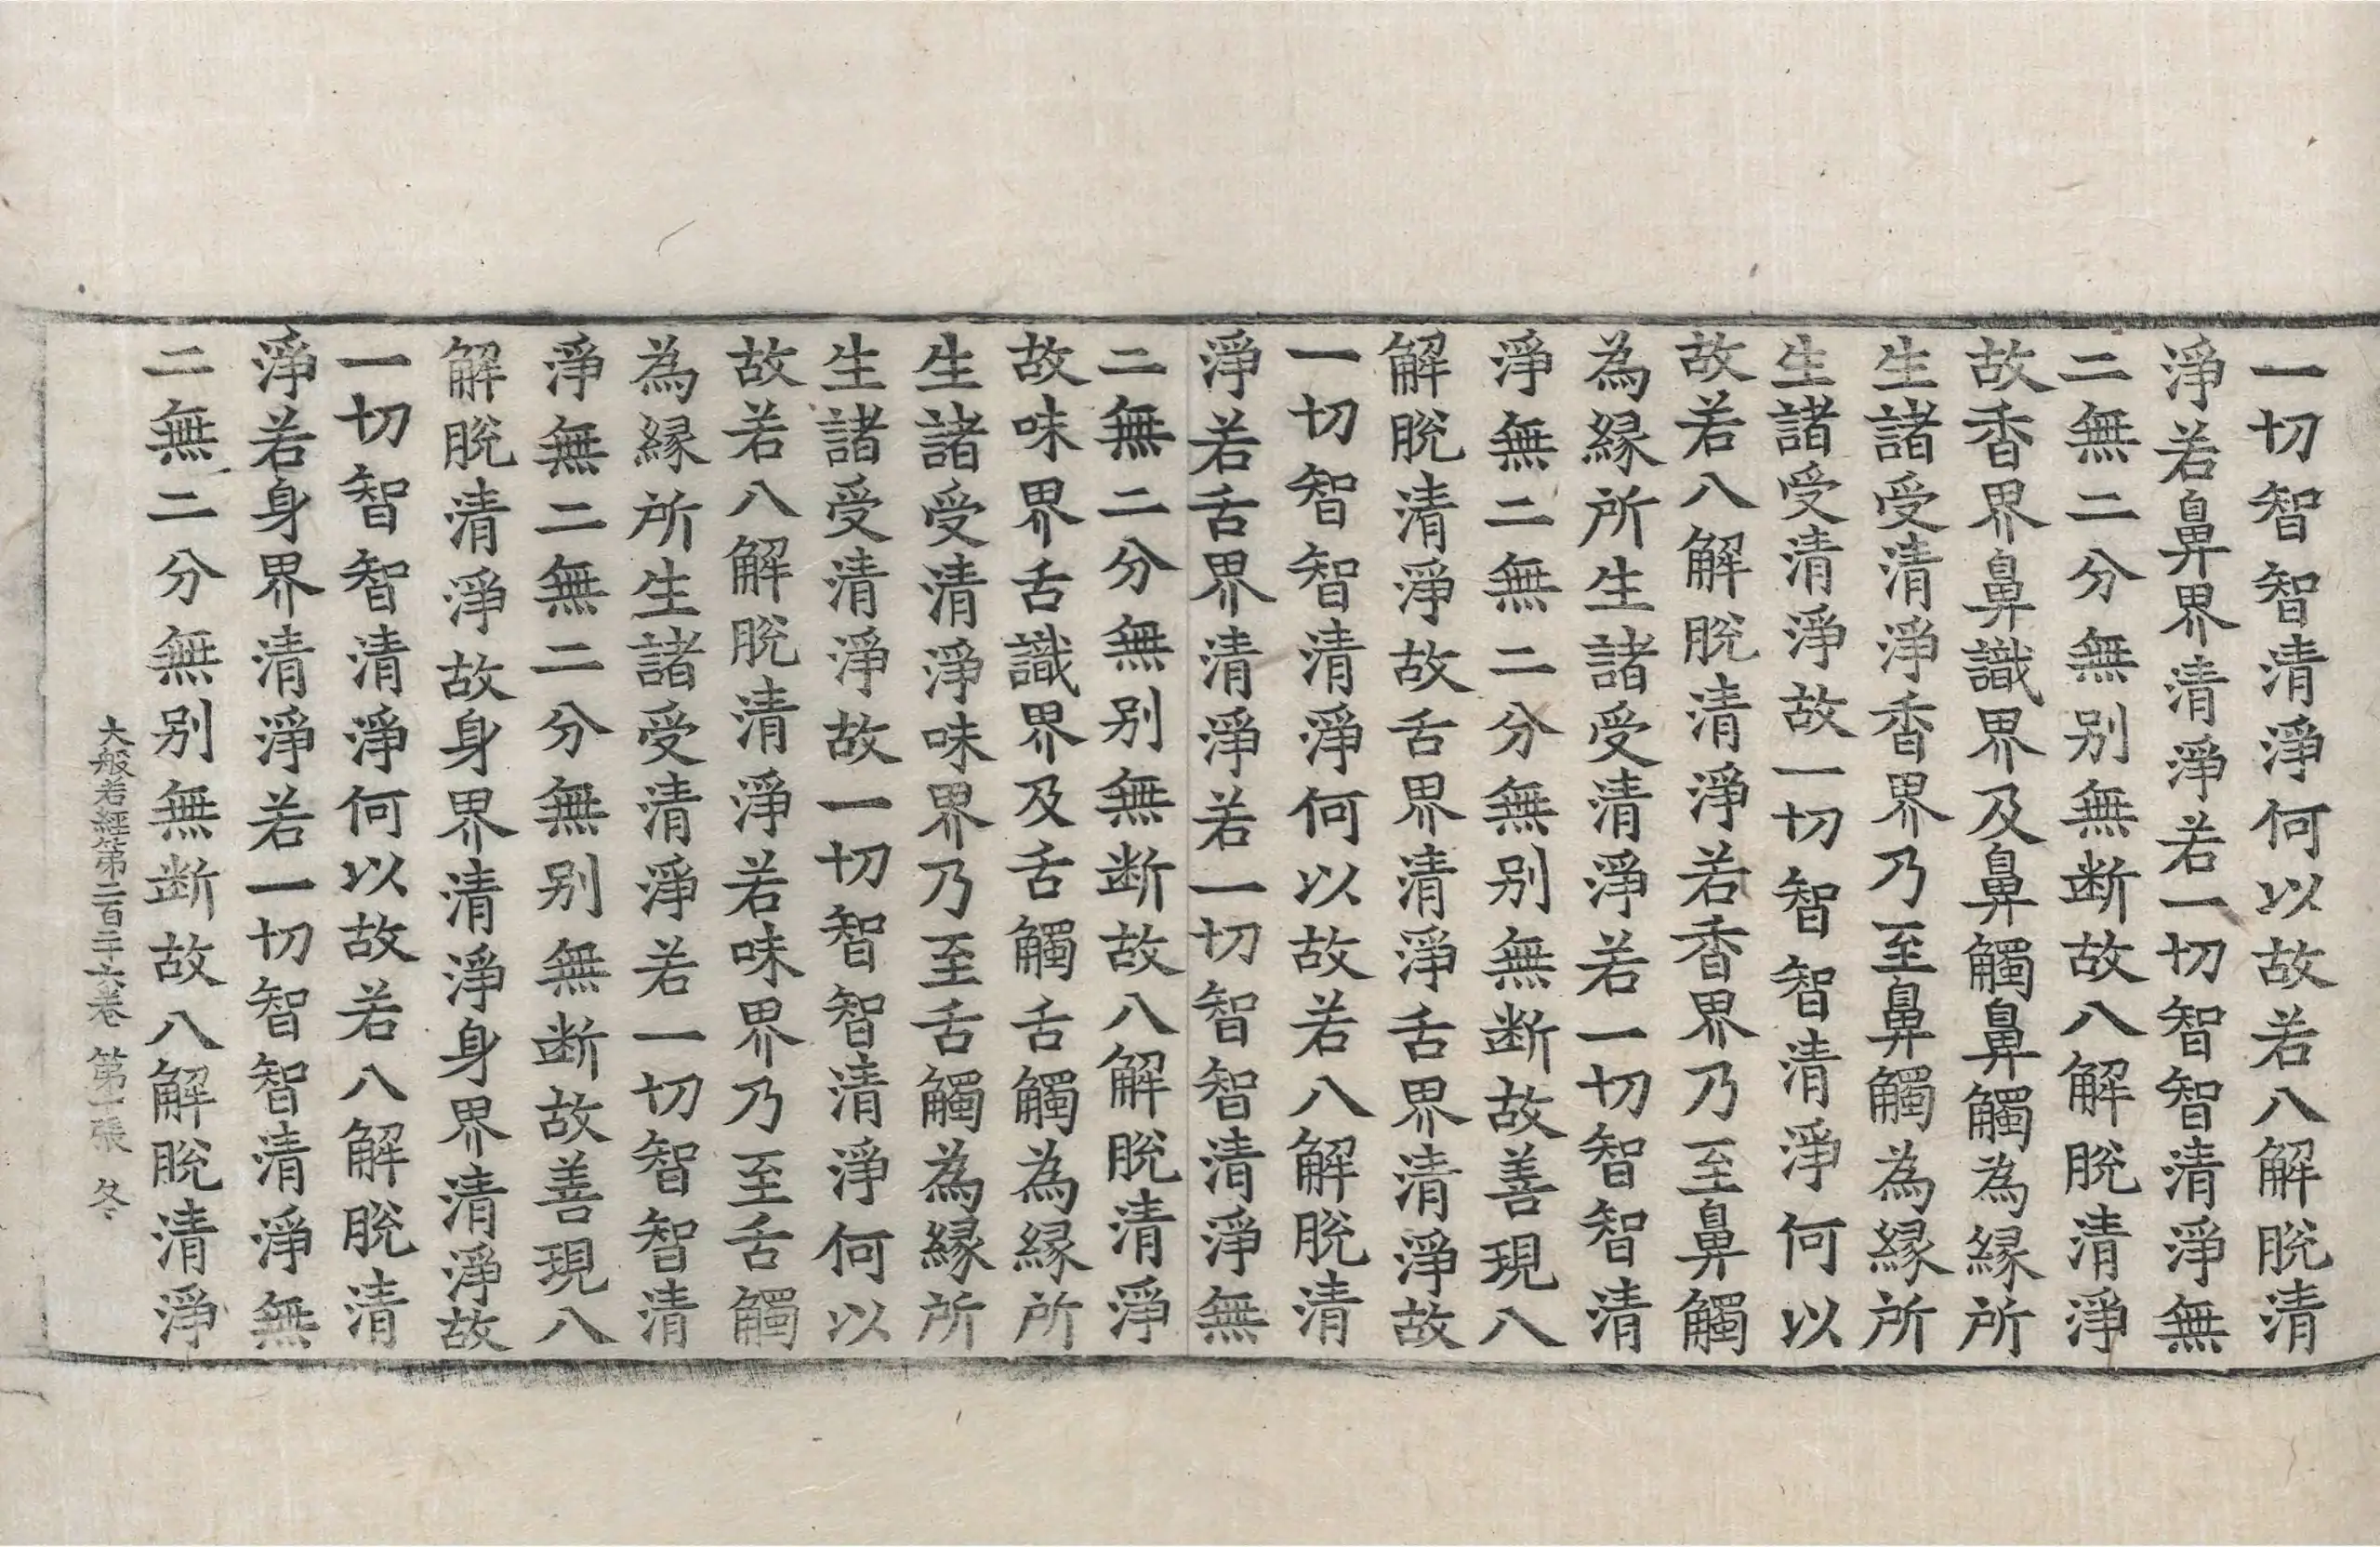 一切智智清淨何以故若八解脫清
淨若鼻界清淨若一切智智清淨無
二無二分無别無断故八解脫清淨
故香界鼻識界及鼻觸鼻觸為緣所
生諸受清淨香界乃至鼻觸為緣所
生諸受清淨故一切智智清淨何以
故若八解脫清淨若香界乃至鼻觸
為緣所生諸受清淨若一切智智清
淨無二無二分無别無断故善現八
解脫清淨故舌界清淨舌界清淨故
一切智智清淨何以故若八解脫清
淨若舌界清淨若一切智智清淨無
二無二分無别無断故八解脫清淨
故味界舌識界及舌觸舌觸為緣所
生諸受清淨味界乃至舌觸為緣所
生諸受清淨故一切智智清淨何以
故若八解脫清淨若味界乃至舌觸
為緣所生諸受清淨若一切智智清
淨無二無二分無别無断故善現八
解脫清淨故身界清淨身界清淨故
一切智智清淨何以故若八解脫清
淨若身界清淨若一切智智清淨無
二無二分無别無断故八解脫清淨
大般若經第二百二十六卷 第十張 冬